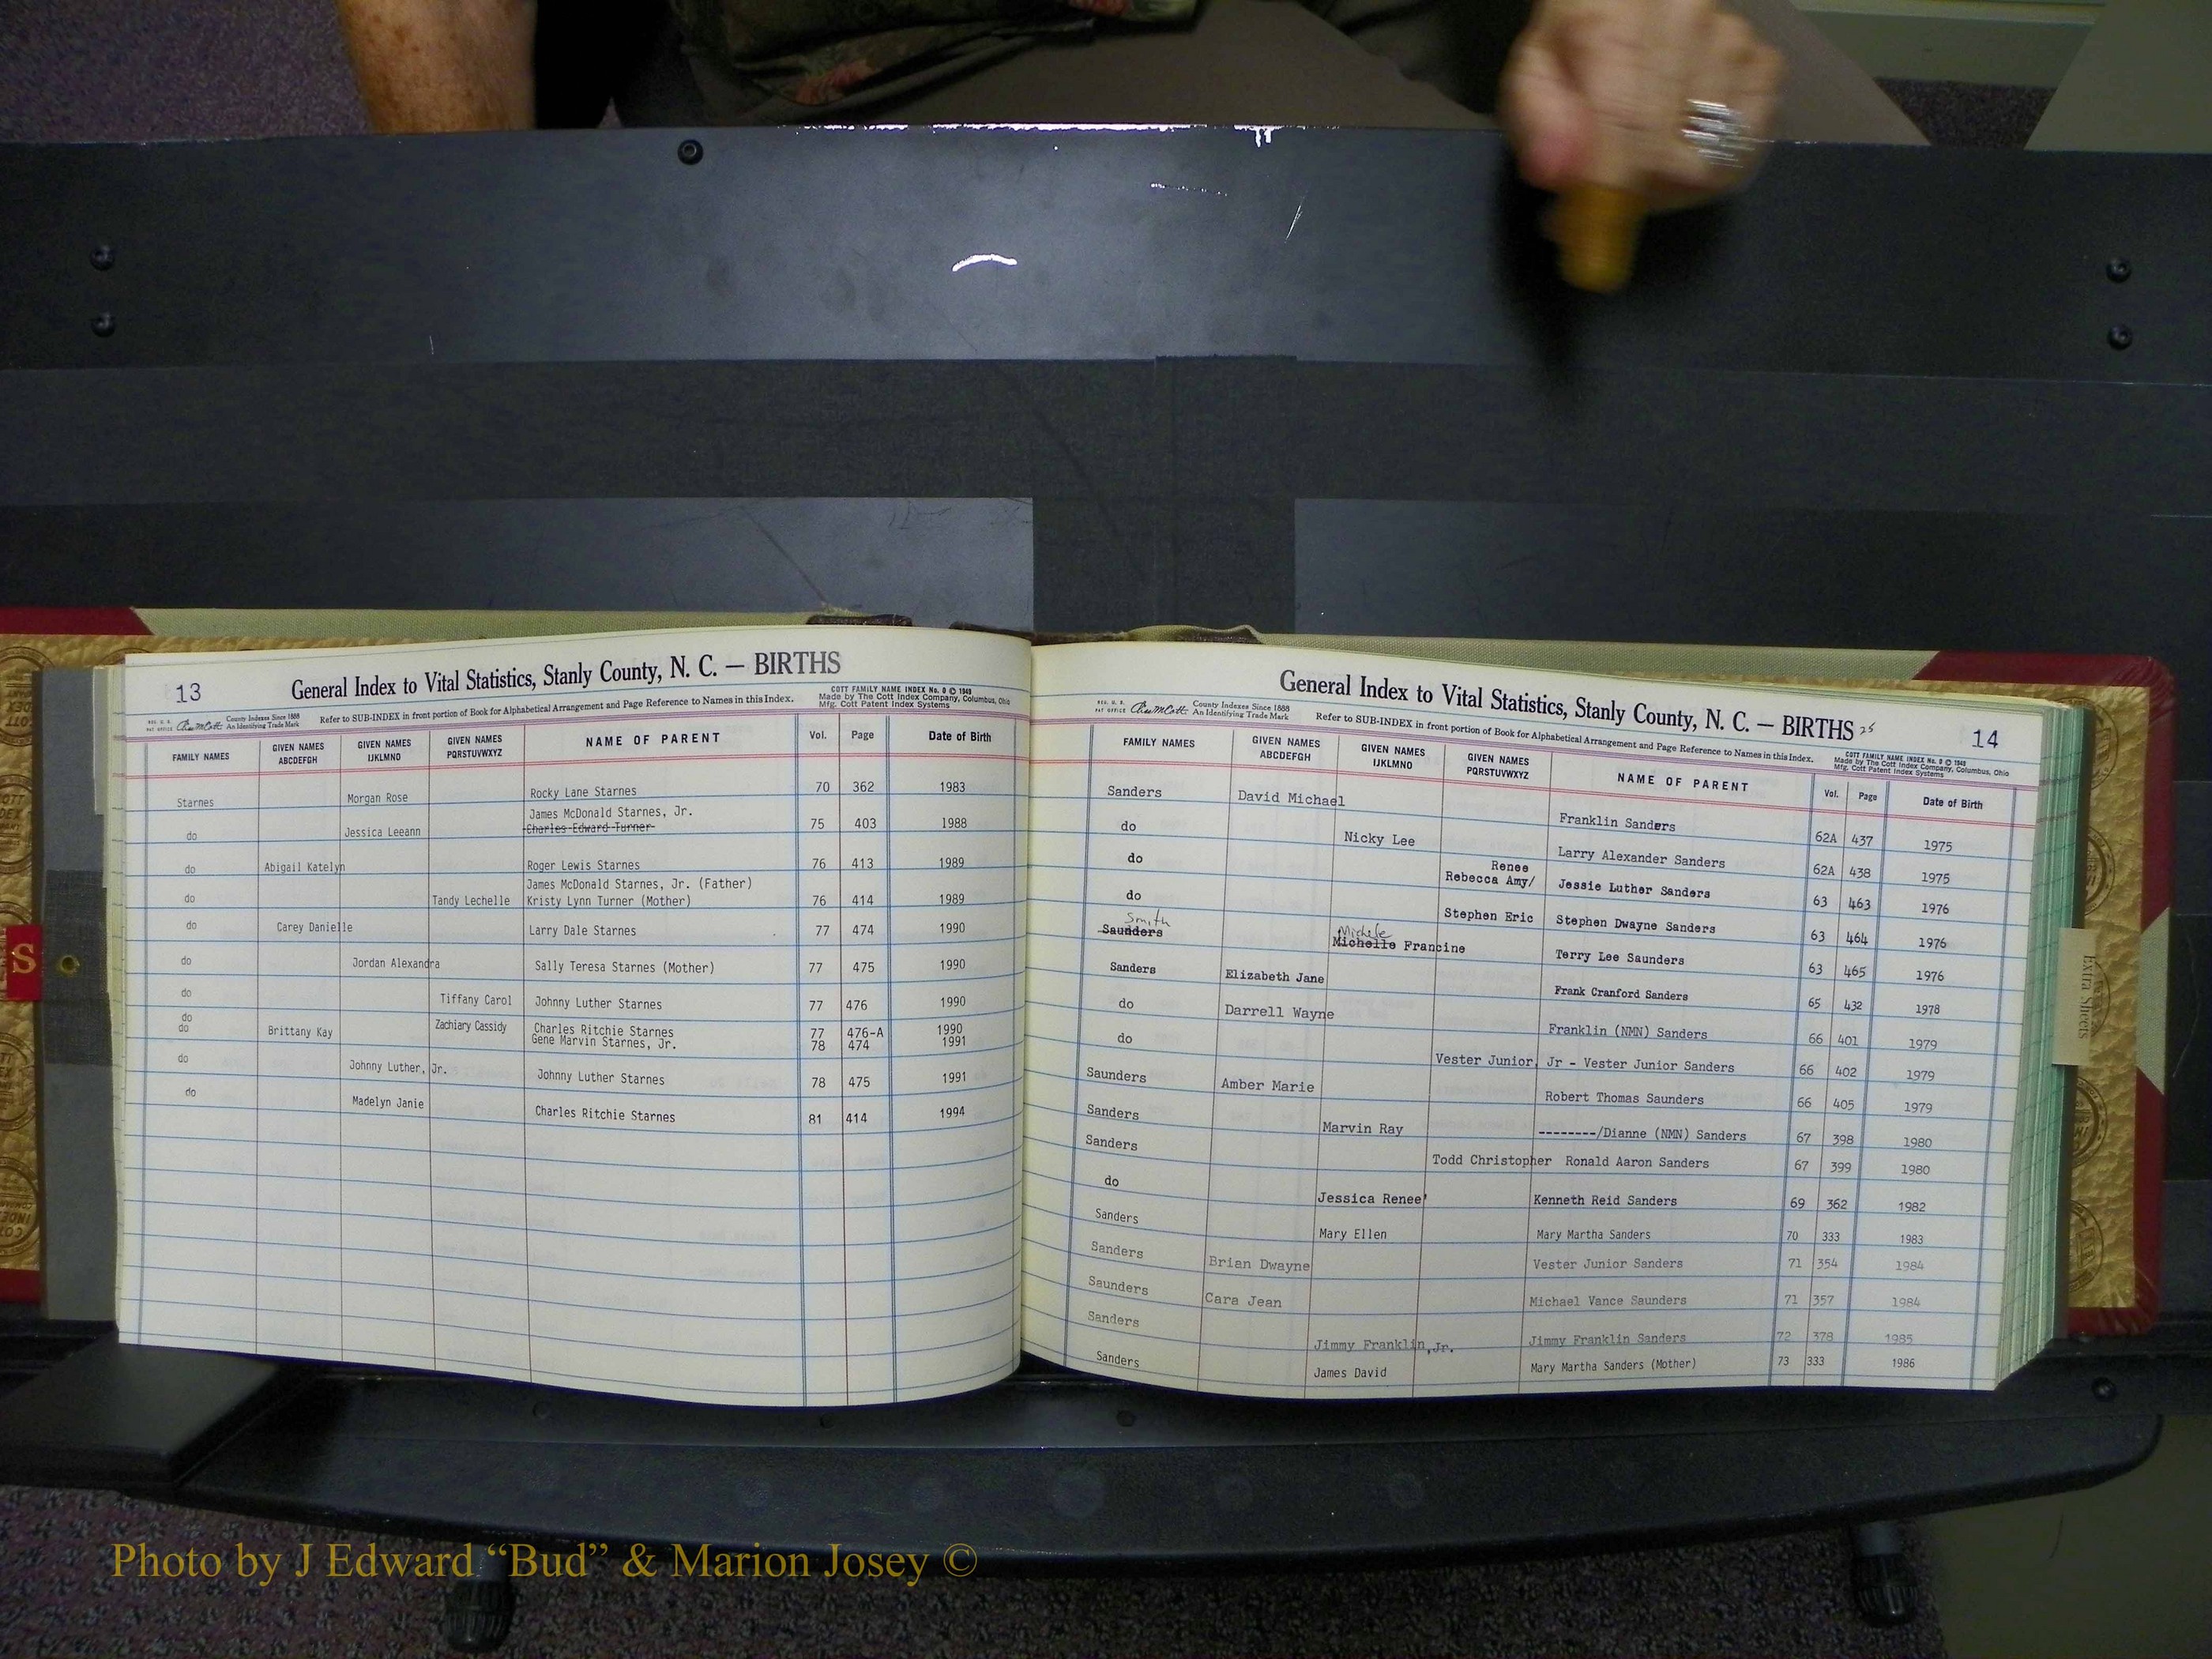 13
General Index to Vital Statistics, Stanly County, N. C. — BIRTHS
COTT FAMILY NAME INDEX No. 0 © 1949
Made by The Cott Index Company, Columbus, Ohio
Mfg. Cott Patent Index Systems
REG. U. S. PAT OFFICE County Indexes Since 1888 An Identifying Trade Mark
Refer to SUB-INDEX in front portion of Book for Alphabetical Arrangement and Page Reference to Names in this Index.
FAMILY NAMES GIVEN NAMES ABCDEFGH GIVEN NAMES IJKLMNO GIVEN NAMES PQRSTUVWXYZ NAME OF PARENT Vol. Page Date of Birth
Starnes Morgan Rose Rocky Lane Starnes 70 362 1983
James McDonald Starnes, Jr.
do Jessica Leeann Charles Edward Turner 75 403 1988
do Abigail Katelyn Roger Lewis Starnes 76 413 1989
James McDonald Starnes, Jr. (Father)
do Tandy Lechelle Kristy Lynn Turner (Mother) 76 414 1989
do Carey Danielle Larry Dale Starnes 77 474 1990
do Jordan Alexandra Sally Teresa Starnes (Mother) 77 475 1990
do Tiffany Carol Johnny Luther Starnes 77 476 1990
do Zachiary Cassidy Charles Ritchie Starnes 77 476-A 1990
do Brittany Kay Gene Marvin Starnes, Jr. 78 474 1991
do Johnny Luther, Jr. Johnny Luther Starnes 78 475 1991
do Madelyn Janie Charles Ritchie Starnes 81 414 1994
S
General Index to Vital Statistics, Stanly County, N. C. — BIRTHS 25
14
REG. U. S. PAT OFFICE County Indexes Since 1888 An Identifying Trade Mark
Refer to SUB-INDEX in front portion of Book for Alphabetical Arrangement and Page Reference to Names in this Index.
COTT FAMILY NAME INDEX No. 0 © 1949
Made by The Cott Index Company, Columbus, Ohio
Mfg. Cott Patent Index Systems
FAMILY NAMES GIVEN NAMES ABCDEFGH GIVEN NAMES IJKLMNO GIVEN NAMES PQRSTUVWXYZ NAME OF PARENT Vol. Page Date of Birth
Sanders David Michael Franklin Sanders 62A 437 1975
do Nicky Lee Larry Alexander Sanders 62A 438 1975
Renee
do Rebecca Amy/ Jessie Luther Sanders 63 463 1976
do Stephen Eric Stephen Dwayne Sanders 63 464 1976
Smith Michele
Saunders Michelle Francine Terry Lee Saunders 63 465 1976
Sanders Elizabeth Jane Frank Cranford Sanders 65 432 1978
do Darrell Wayne Franklin (NMN) Sanders 66 401 1979
do Vester Junior, Jr - Vester Junior Sanders 66 402 1979
Saunders Amber Marie Robert Thomas Saunders 66 405 1979
Sanders Marvin Ray --------/Dianne (NMN) Sanders 67 398 1980
Sanders Todd Christopher Ronald Aaron Sanders 67 399 1980
do Jessica Renee' Kenneth Reid Sanders 69 362 1982
Sanders Mary Ellen Mary Martha Sanders 70 333 1983
Sanders Brian Dwayne Vester Junior Sanders 71 354 1984
Saunders Cara Jean Michael Vance Saunders 71 357 1984
Sanders Jimmy Franklin, Jr. Jimmy Franklin Sanders 72 378 1985
Sanders James David Mary Martha Sanders (Mother) 73 333 1986
Extra Sheets
Photo by J Edward “Bud” & Marion Josey ©